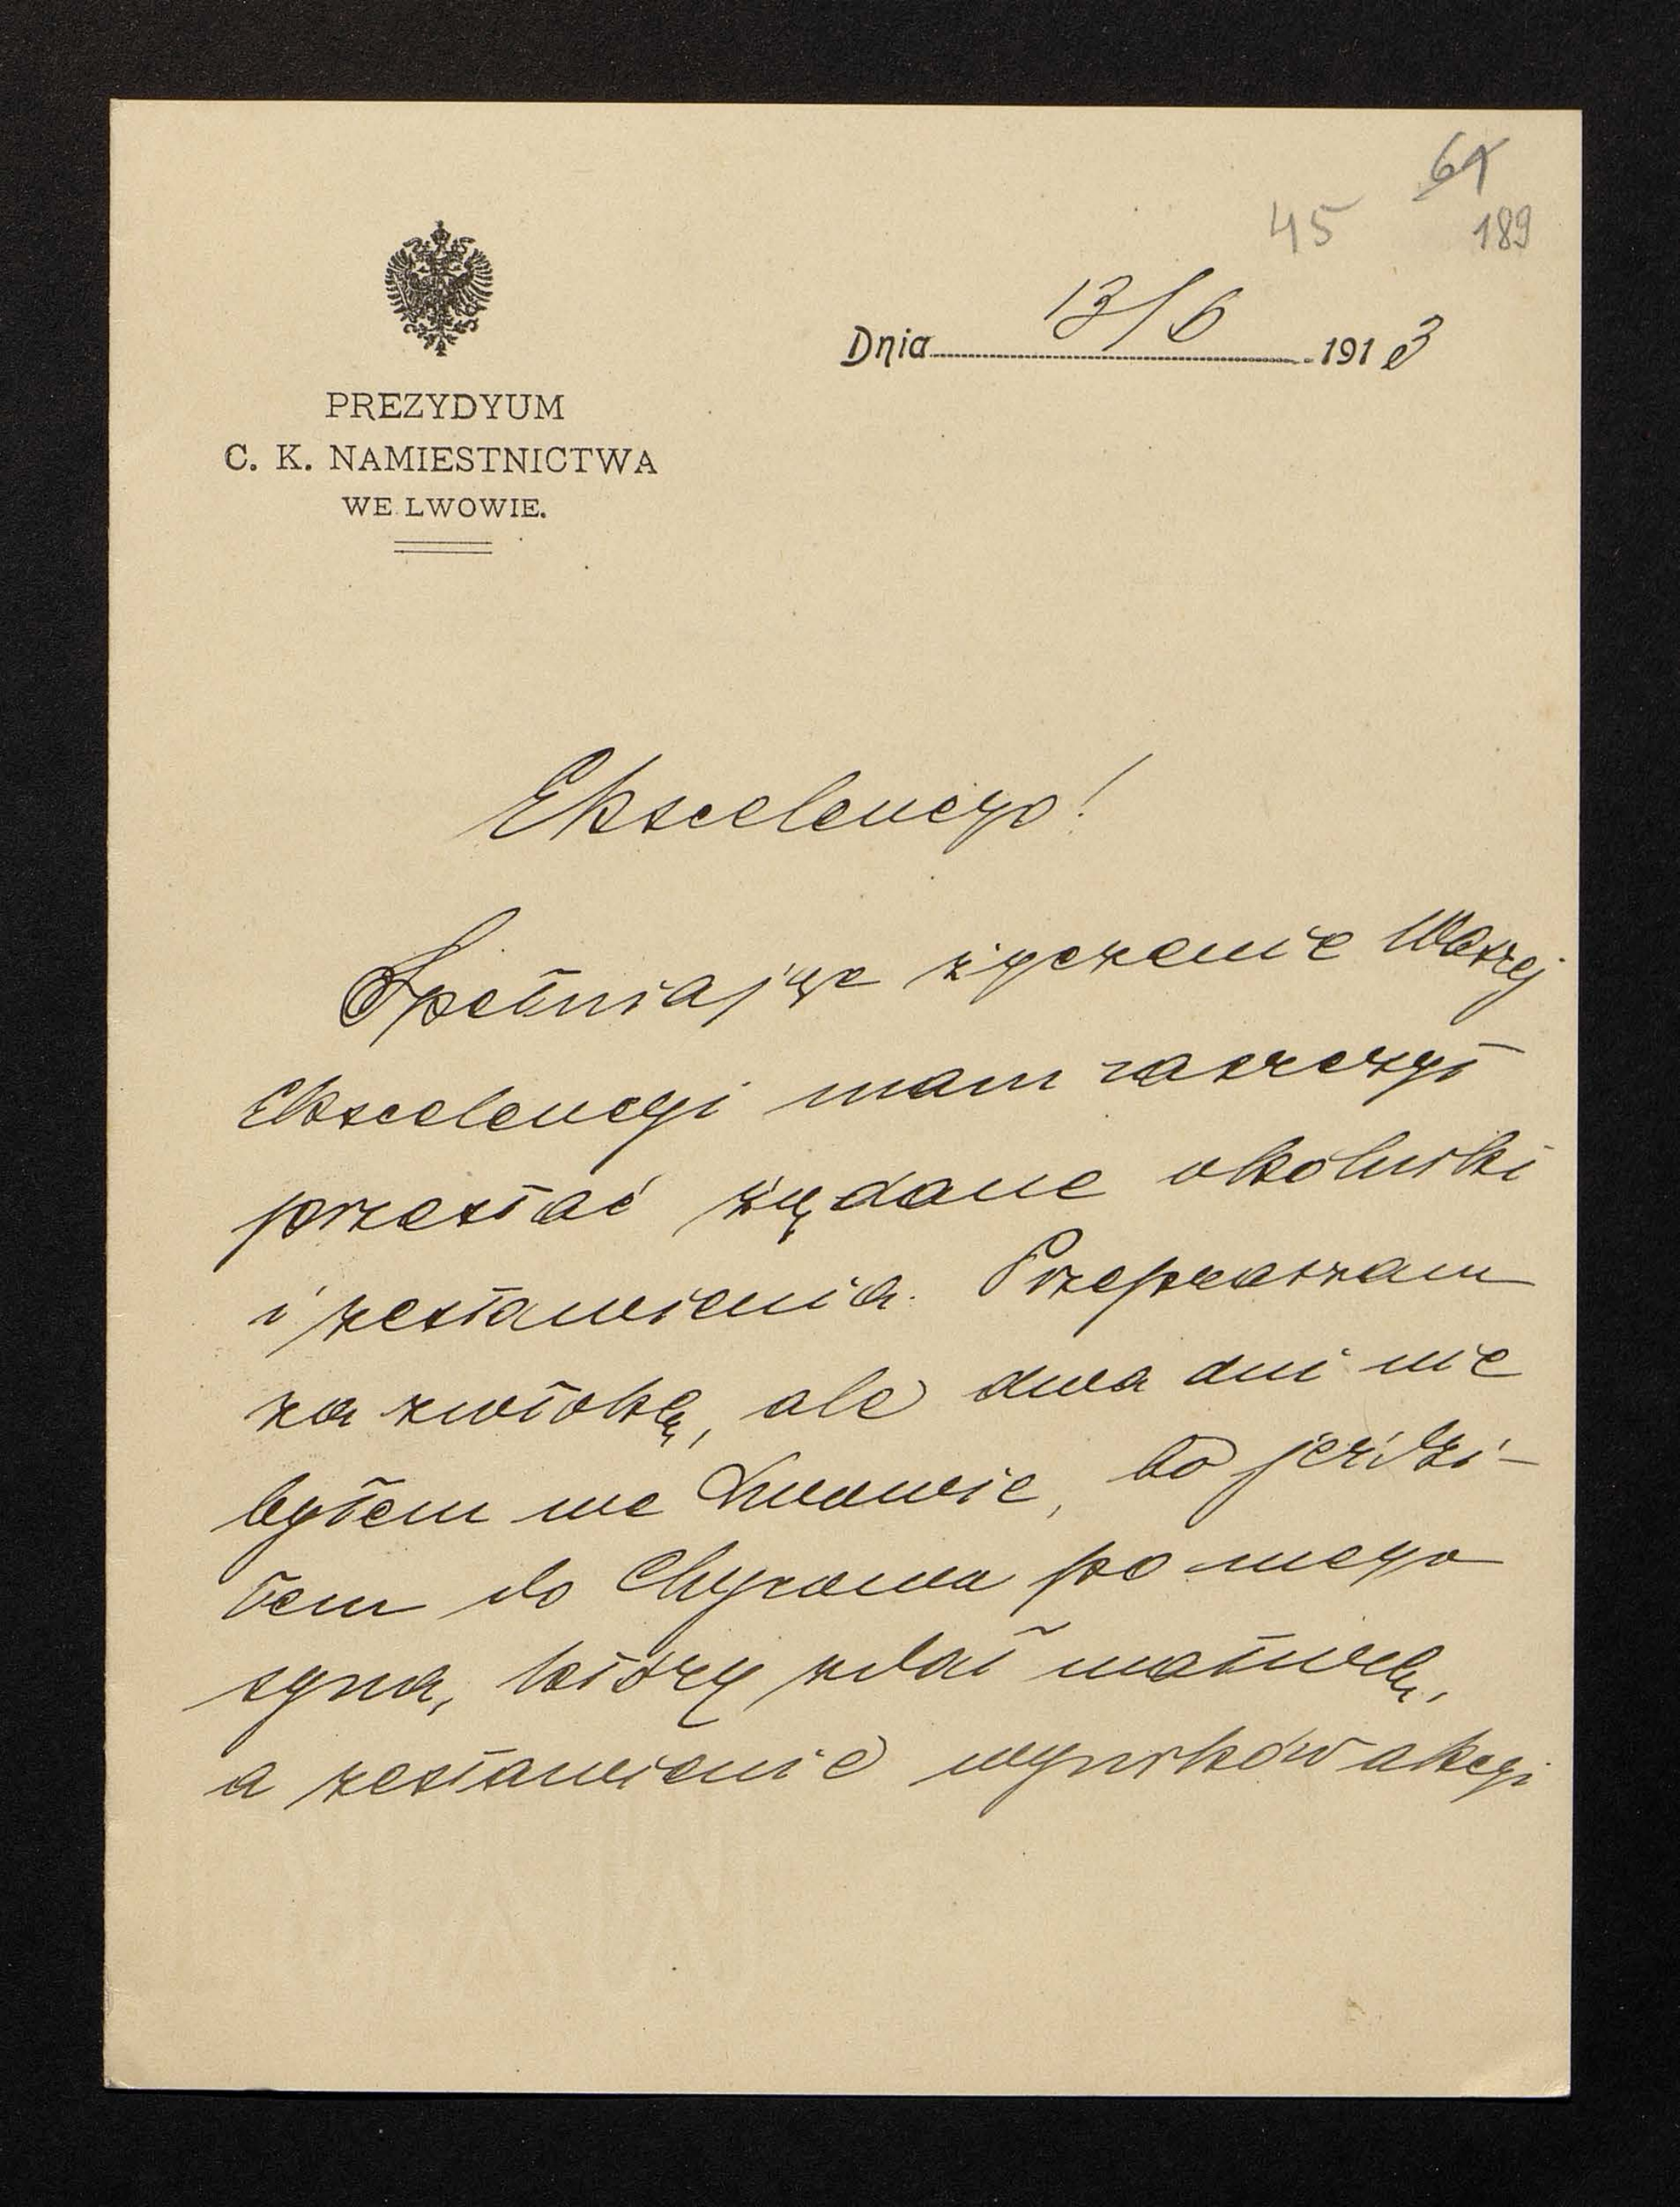 61
45
189
Dnia 13/6 1913
PREZYDYUM
C. K. NAMIESTNICTWA
WE LWOWIE.
Ekscelencyo!
Spełniając życzenie Waszej
Ekscelencyi mam zaszczyt
przesłać żądane okólniki
i zestawienia. Przepraszam
za zwłokę, ale dwa dni nie
byłem we Lwowie, bo jeździ-
łem do Chyrowa po mego
syna, który zdał maturę,
a zestawienie wyników akcyi